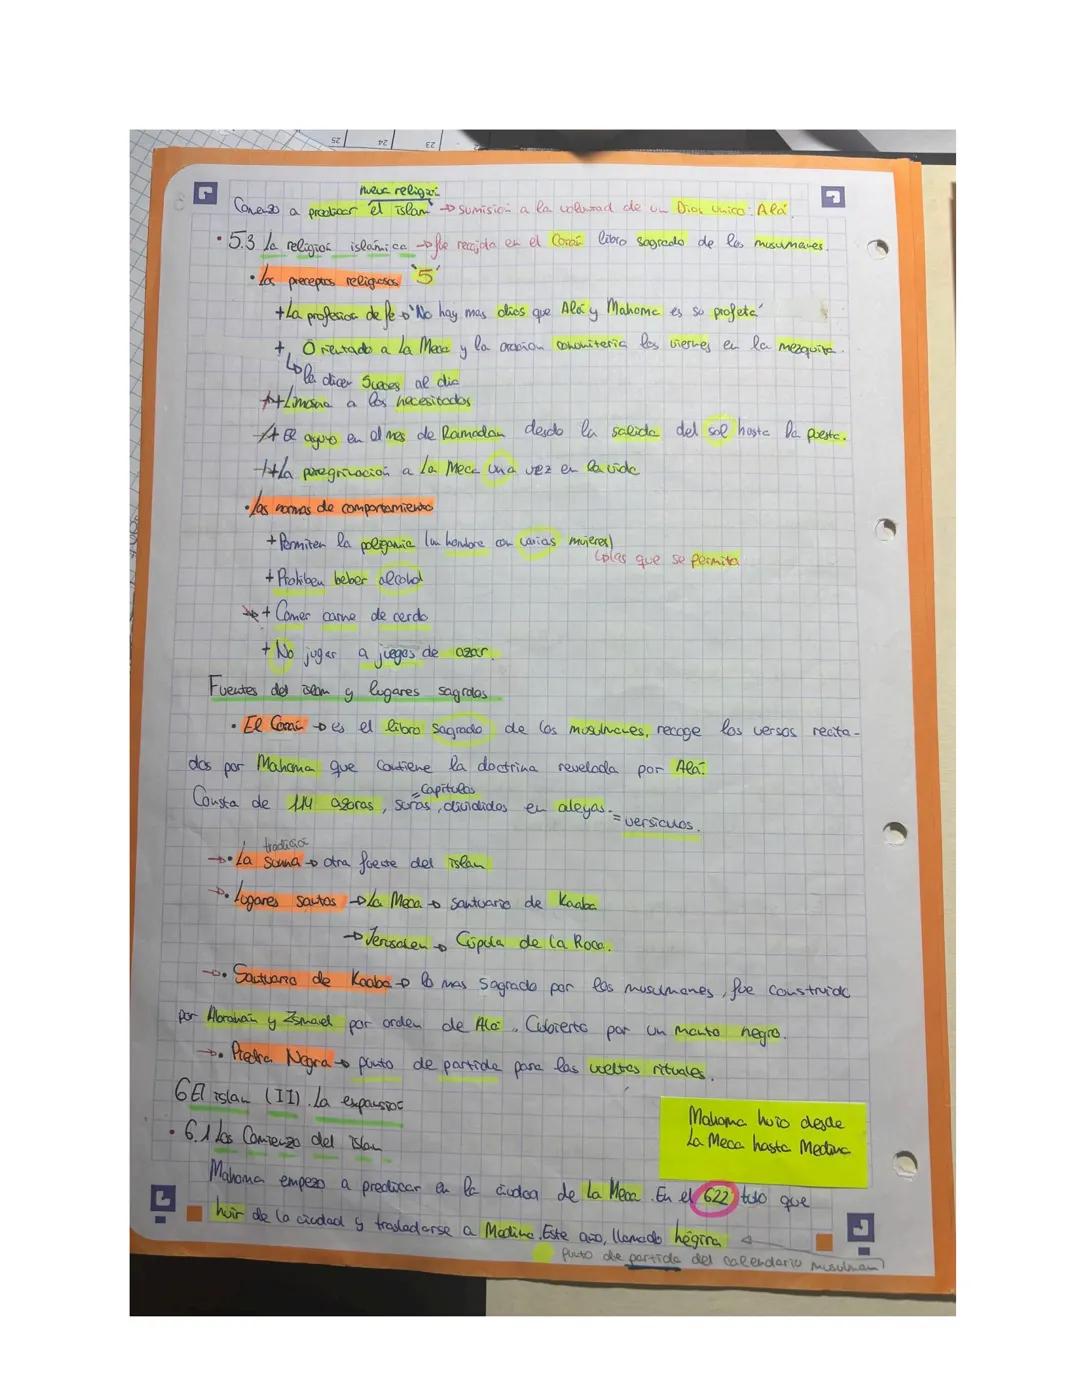 25 24 23
nueva religión
Comenzo a predicar el islam → sumisión a la voluntad de un Dios unico: Alá.
• 5.3 La religión islámica → fue recogida en el Corán libro sagrado de los musulmanes.
• Los preceptos religiosos "5"
+ La profesion de fe → "No hay mas dios que Alá y Mahoma es su profeta"
+ Orientado a La Meca y la oración comunitaria los viernes en la mezquita.
↳ la dicen 5 veces al dia
+ Limosna a los necesitados
+ El ayuno en el mes de Ramadan desde la salida del sol hasta la puesta.
+ La peregrinación a La Meca una vez en la vida
• Las normas de comportamiento
+ Permiten la poligamia (un hombre con varias mujeres)
↳ las que se permita
+ Prohiben beber alcohol
+ Comer carne de cerdo
+ No jugar a juegos de azar.
Fuentes del islam y lugares sagrados
• El Corán → es el libro sagrado de los musulmanes, recoge los versos recita-
dos por Mahoma que contiene la doctrina revelada por Alá.
= capitulos
Consta de 114 azoras, suras, divididos en aleyas. = versiculos.
tradición
→ • La Sunna → otra fuente del islam
→ • Lugares santos → La Meca → santuario de Kaaba
→ Jerusalen → Cúpula de La Roca.
→ • Santuario de Kaaba → lo mas sagrado por los musulmanes, fue construido
por Abrahán y Ismael por orden de Alá. Cubierto por un manto negro.
→ • Piedra Negra → punto de partida para las vueltas rituales.
6 El islam (II). La expansión
• 6.1 Los Comienzo del islam
Mahoma huio desde
La Meca hasta Medina
Mahoma empezo a predicar en la ciudad de La Meca. En el 622 tubo que
huir de la ciudad y trasladarse a Medina. Este año, llamado hégira
punto de partida del calendario musulman